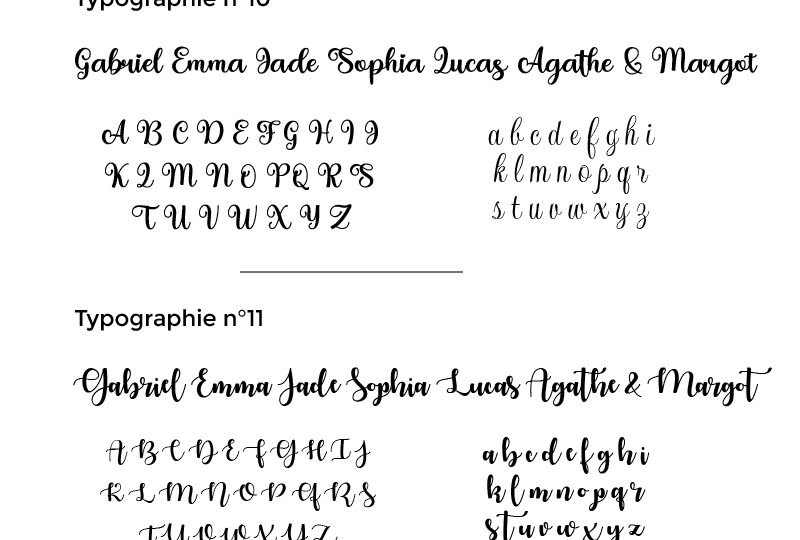 Typographie n°10
Gabriel Emma Jade Sophia Lucas Agathe & Margot
A B C D E F G H I J
K L M N O P Q R S
T U V W X Y Z
a b c d e f g h i
k l m n o p q r
s t u v w x y z
Typographie n°11
Gabriel Emma Jade Sophia Lucas Agathe & Margot
A B C D E F G H I J
K L M N O P Q R S
T U V W X Y Z
a b c d e f g h i
k l m n o p q r
s t u v w x y z